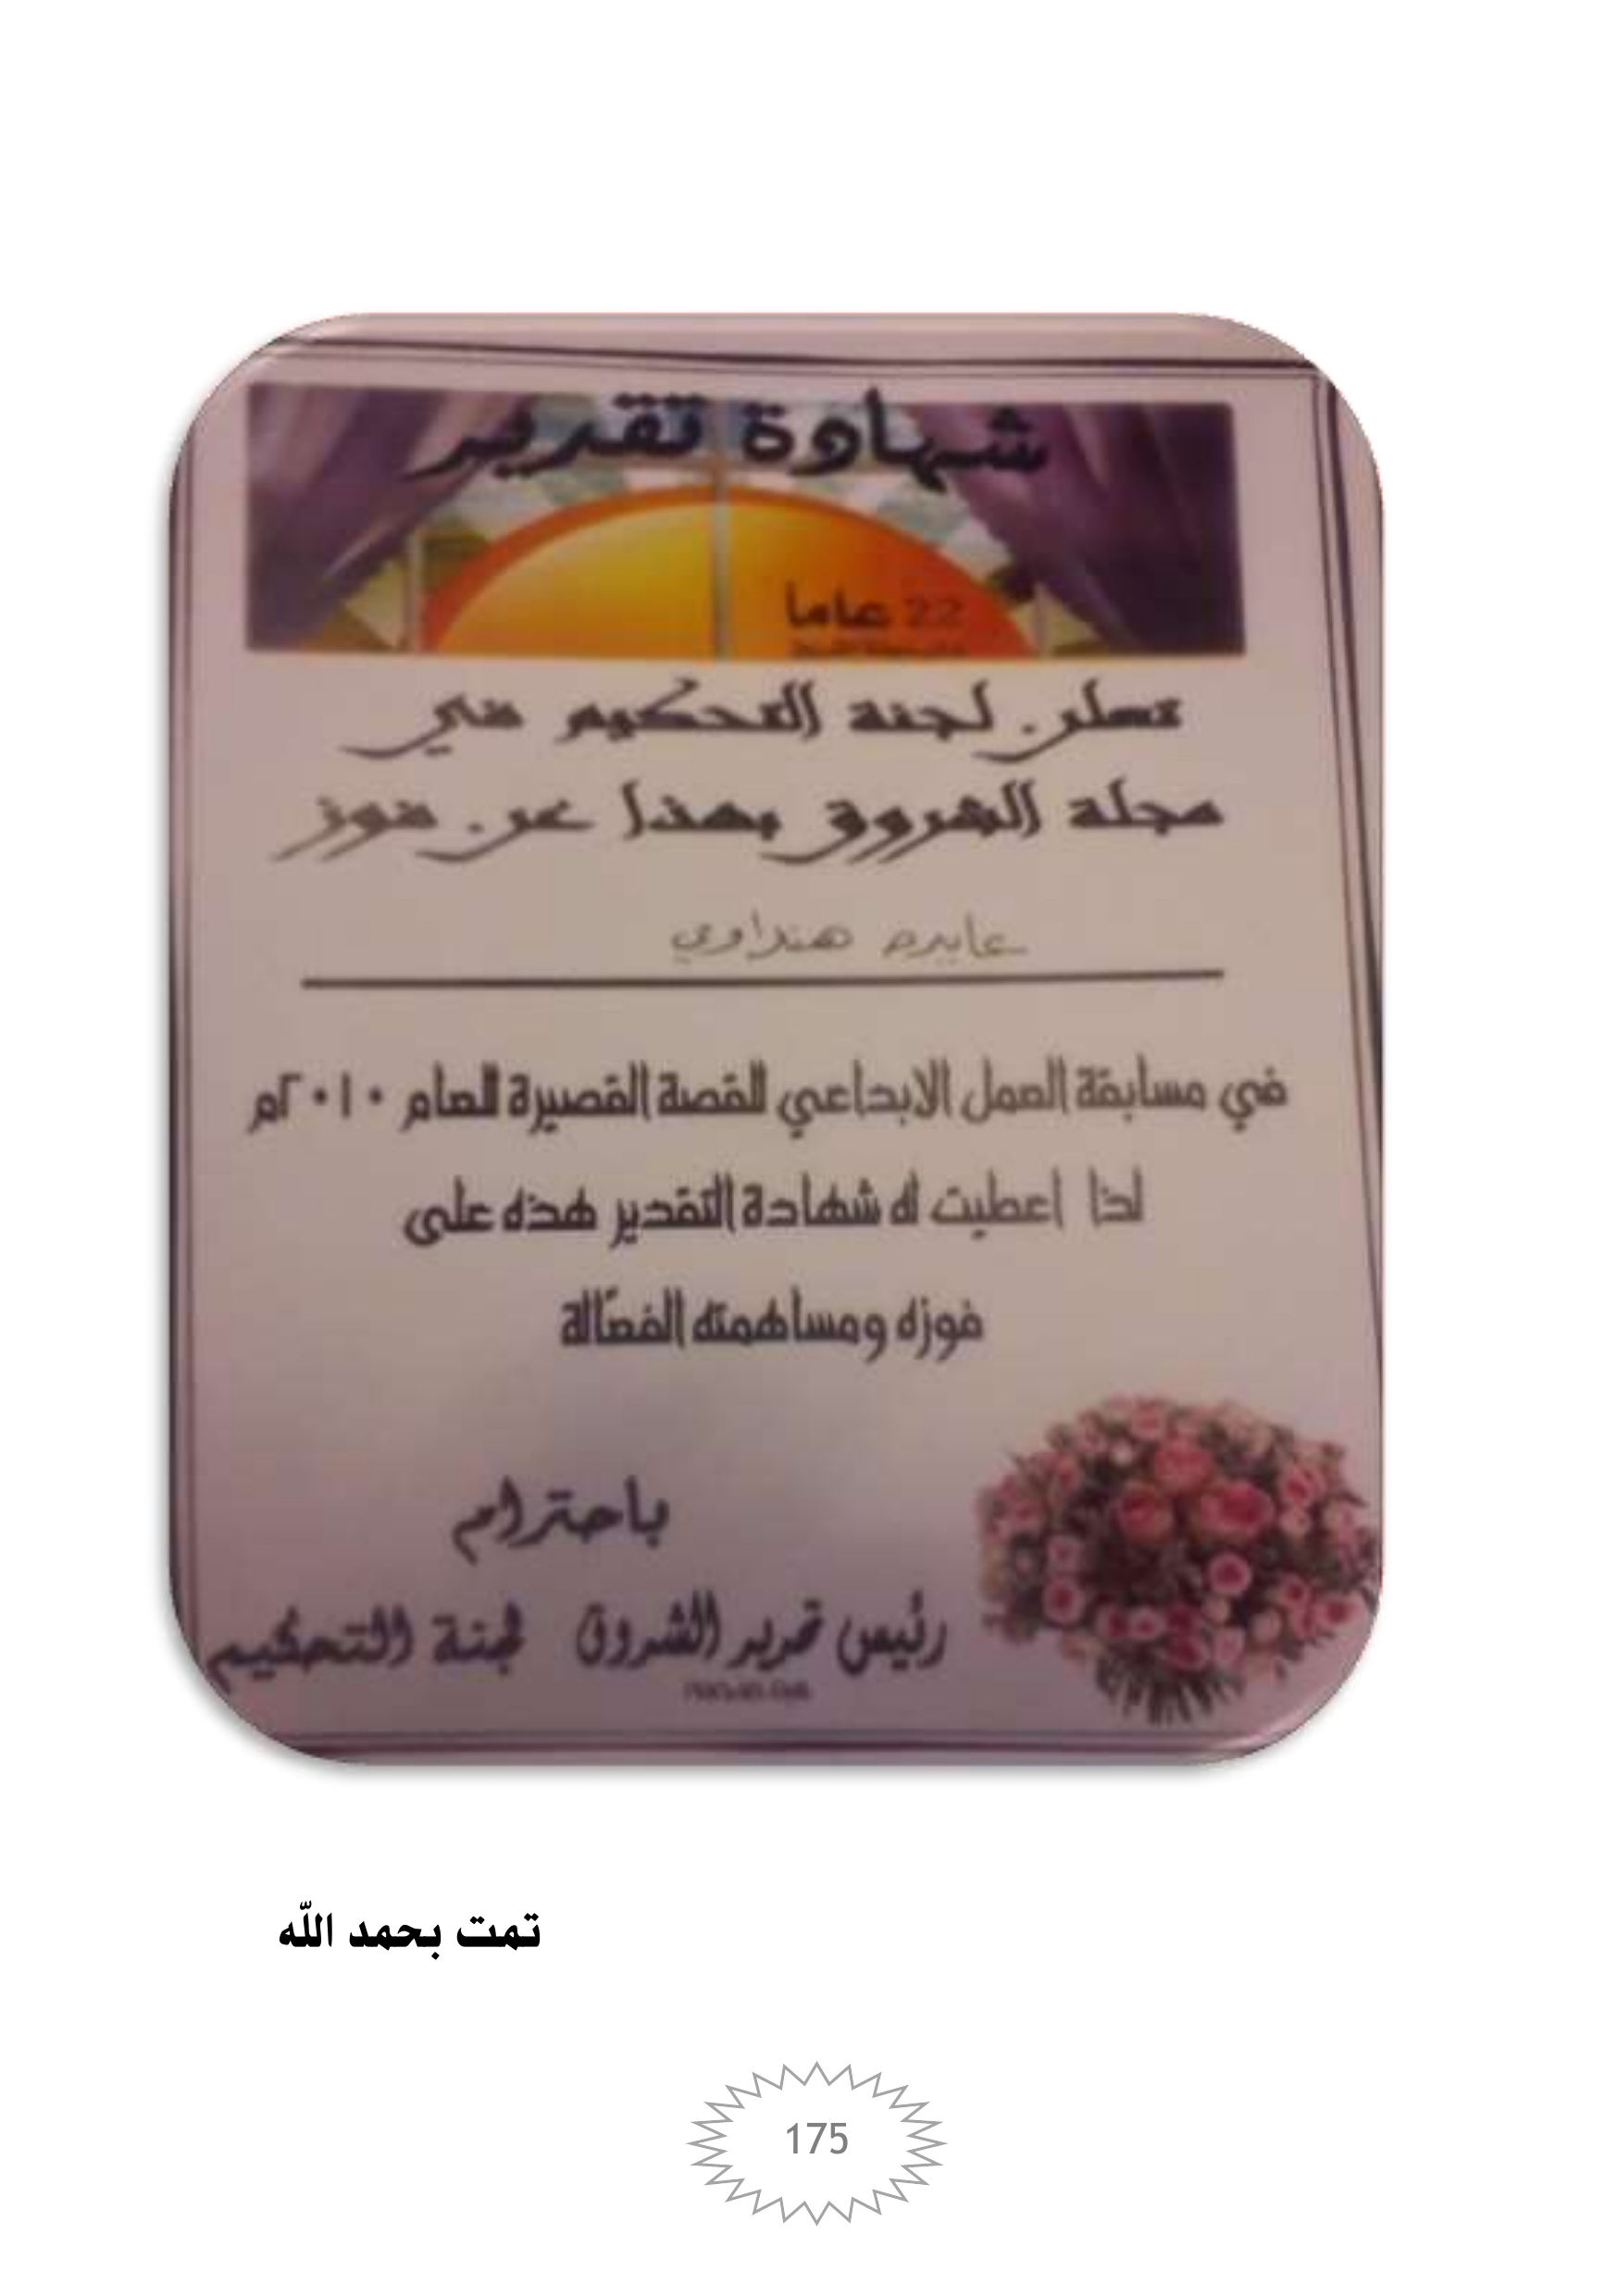 شهادة تقدير
22 عاما
تعلن لجنة التحكيم في
مجلة الشروق بهذا عن فوز
عايده هنداوي
في مسابقة العمل الابداعي للقصة القصيرة للعام ٢٠١٠م
لذا اعطيت له شهادة التقدير هذه على
فوزه ومساهمته الفعّالة
باحترام
رئيس تحرير الشروق لجنة التحكيم
تمت بحمد الله
175